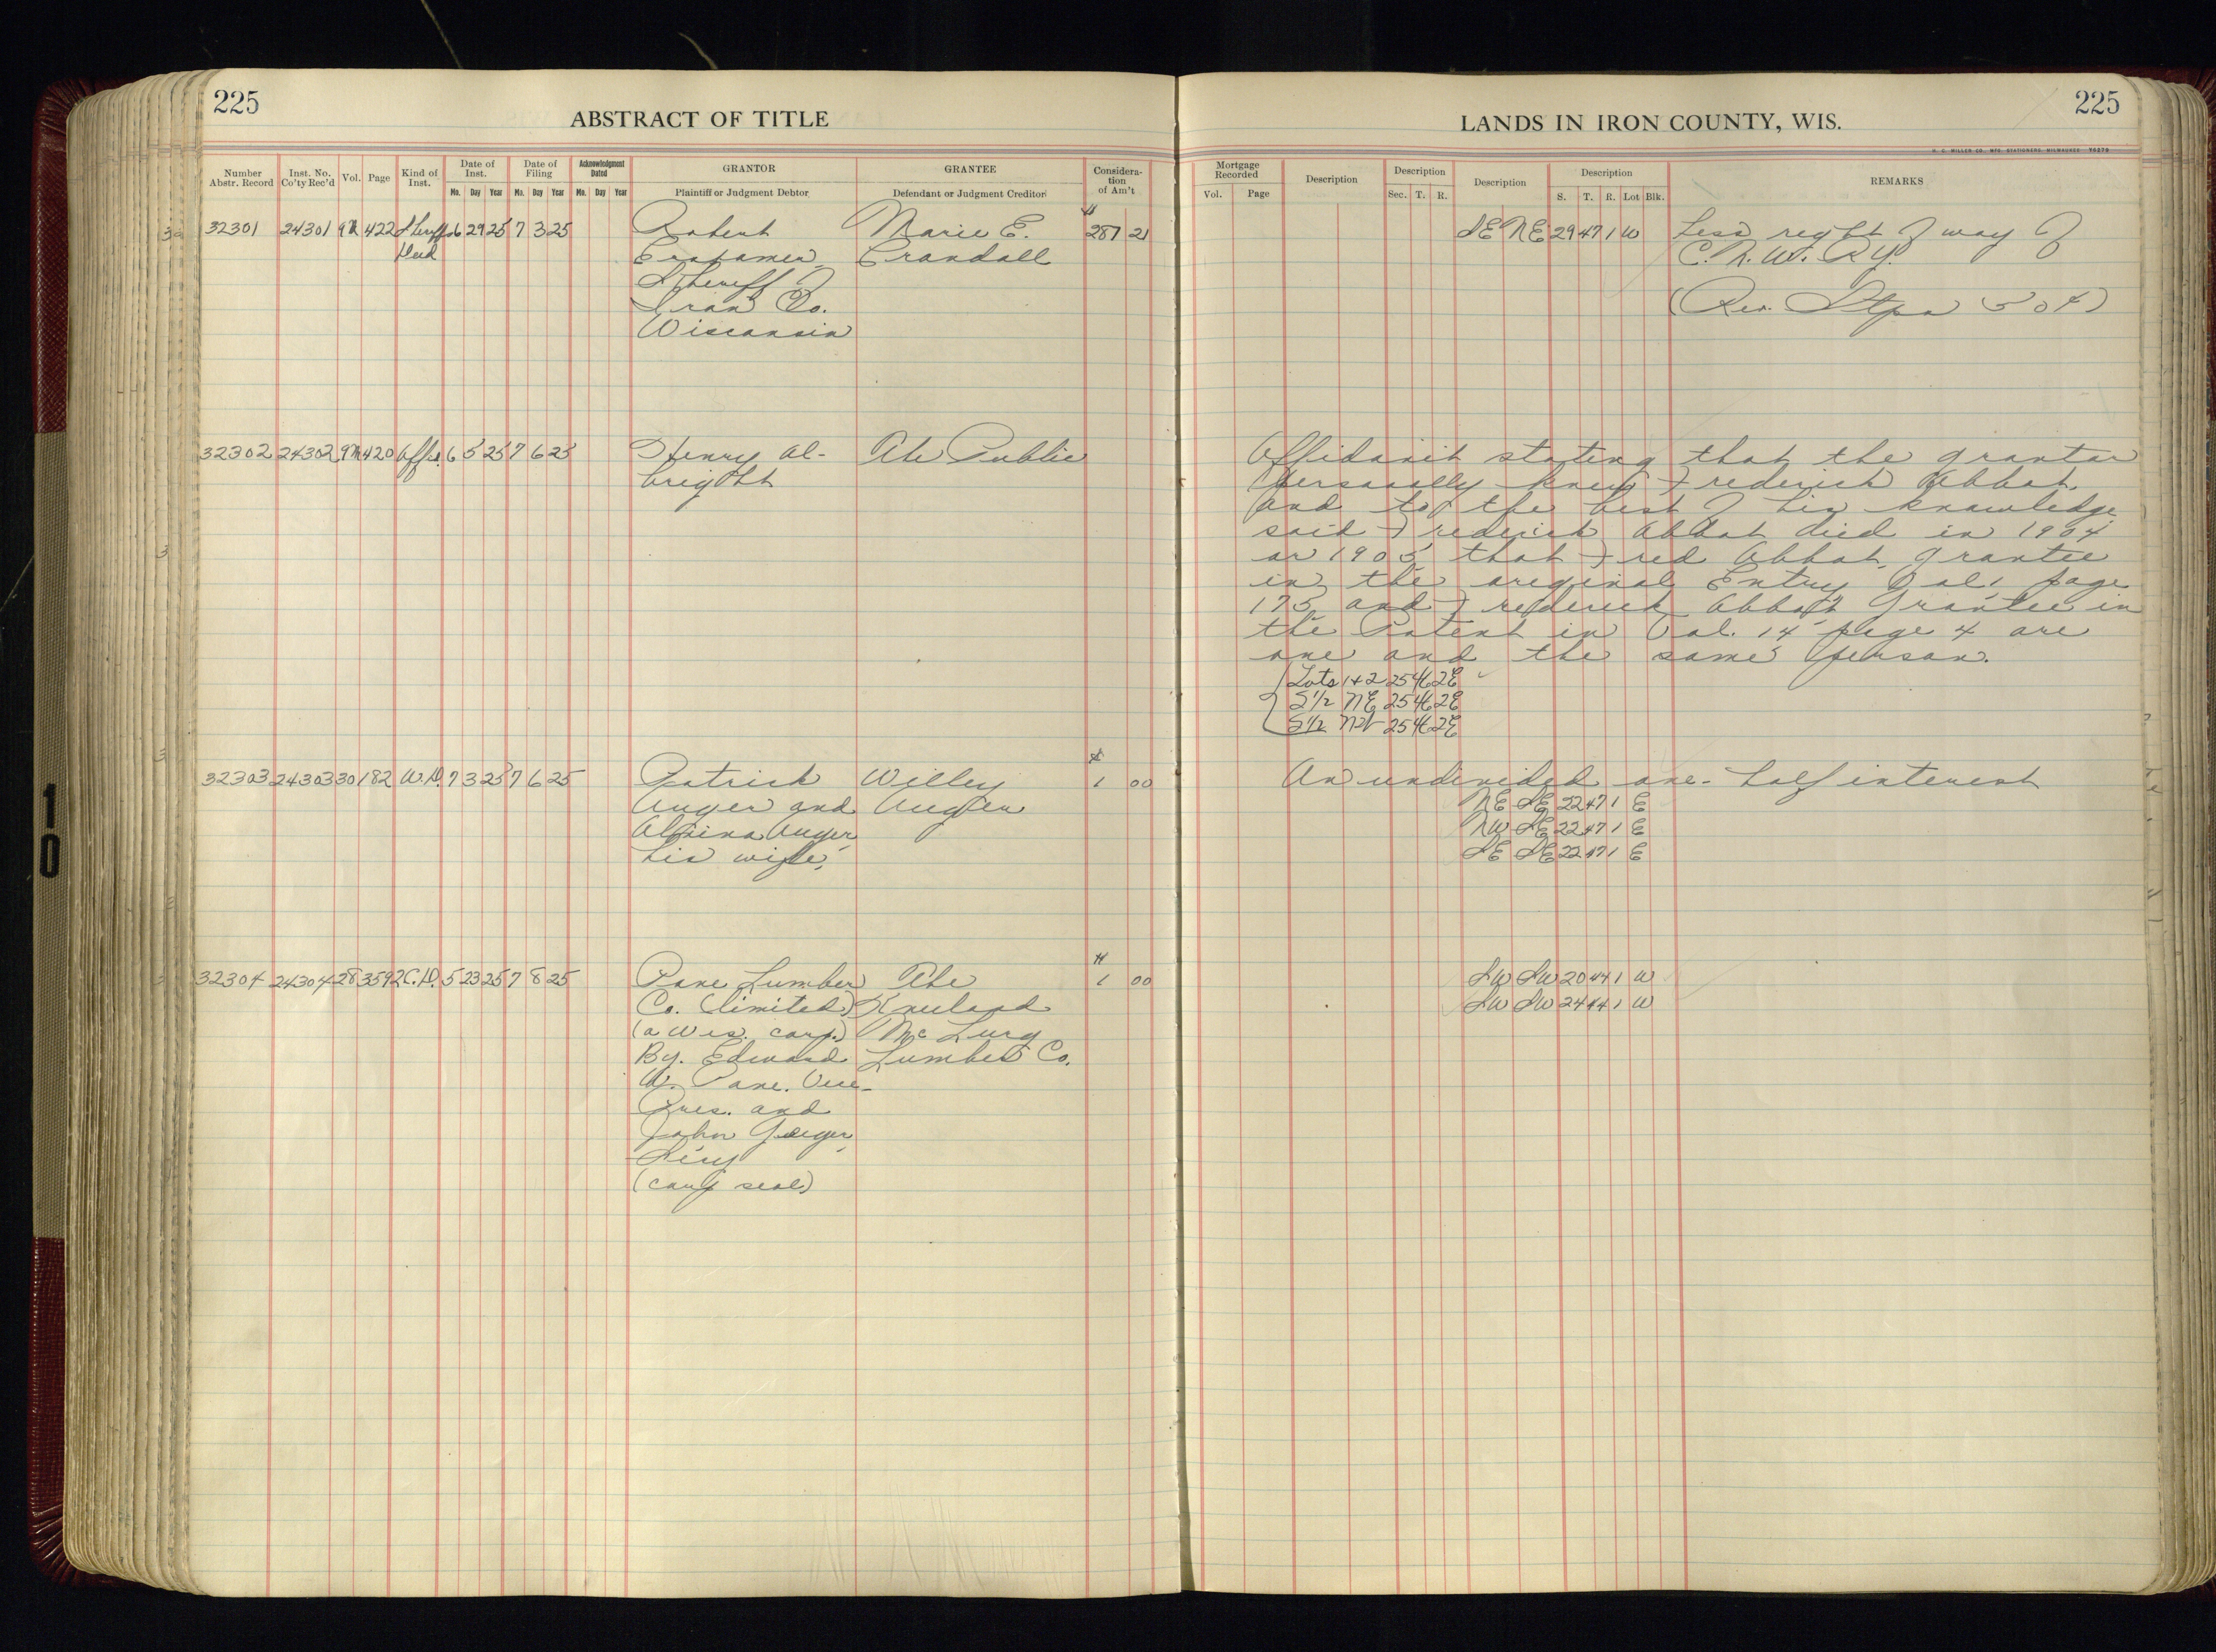 225
ABSTRACT OF TITLE
Number Abstr. Record
Inst. No. Co'ty Rec'd
Vol.
Page
Kind of Inst.
Date of Inst.
Mo. Day Year
Date of Filing
Mo. Day Year
Acknowledgment Dated
Mo. Day Year
GRANTOR
Plaintiff or Judgment Debtor
GRANTEE
Defendant or Judgment Creditor
Considera-
tion
of Am't
32301 24301 422 Sheriffs 6 29 25 7 3 25 Robert Marie E. 287 21
Deed Crandall
Sheriff of
Iron Co.
Wisconsin
32302 24302 420 Affid. 6 5 25 7 6 25 Henry Al- The Public
bright
32303 24303 30 182 W.D. 7 3 25 7 6 25 Patrick Willey 1 00
Auger and Auger
Alpina Auger
his wife,
32304 24304 28 359 C.D. 5 23 25 7 8 25 Paine Lumber The 1 00
Co. (limited) Kneeland
(a Wis. corp.) Mc Lurg
By. Edward Lumber Co.
W. Paine. Vice-
Pres. and
John Geiger,
Secy
(corp seal)
225
LANDS IN IRON COUNTY, WIS.
H. C. MILLER CO., MFG. STATIONERS, MILWAUKEE
Mortgage Recorded
Vol. Page
Description
Description
Sec. T. R.
Description
Description
S. T. R. Lot Blk.
REMARKS
SE NE 29 47 1 W Less right of way of
C. N. W. Ry.
(Rev. Stps 50¢)
Affidavit stating that the grantor
personally knew Frederick Abbot,
and to the best of his knowledge
said Frederick Abbot died in 1904
or 1905, that Fred Abbot, grantee
in the original Entry Vol. 1 page
175 and Frederick Abbott Grantee in
the Patent in Vol. 14 page 4 are
one and the same person.
Lots 1+2 25 46 2E
S 1/2 NE 25 46 2E
S 1/2 NW 25 46 2E
An undivided one-half interest
NE SE 22 47 1 E
NW SE 22 47 1 E
SE SE 22 47 1 E
SW SW 20 44 1 W
SW SW 24 44 1 W
10